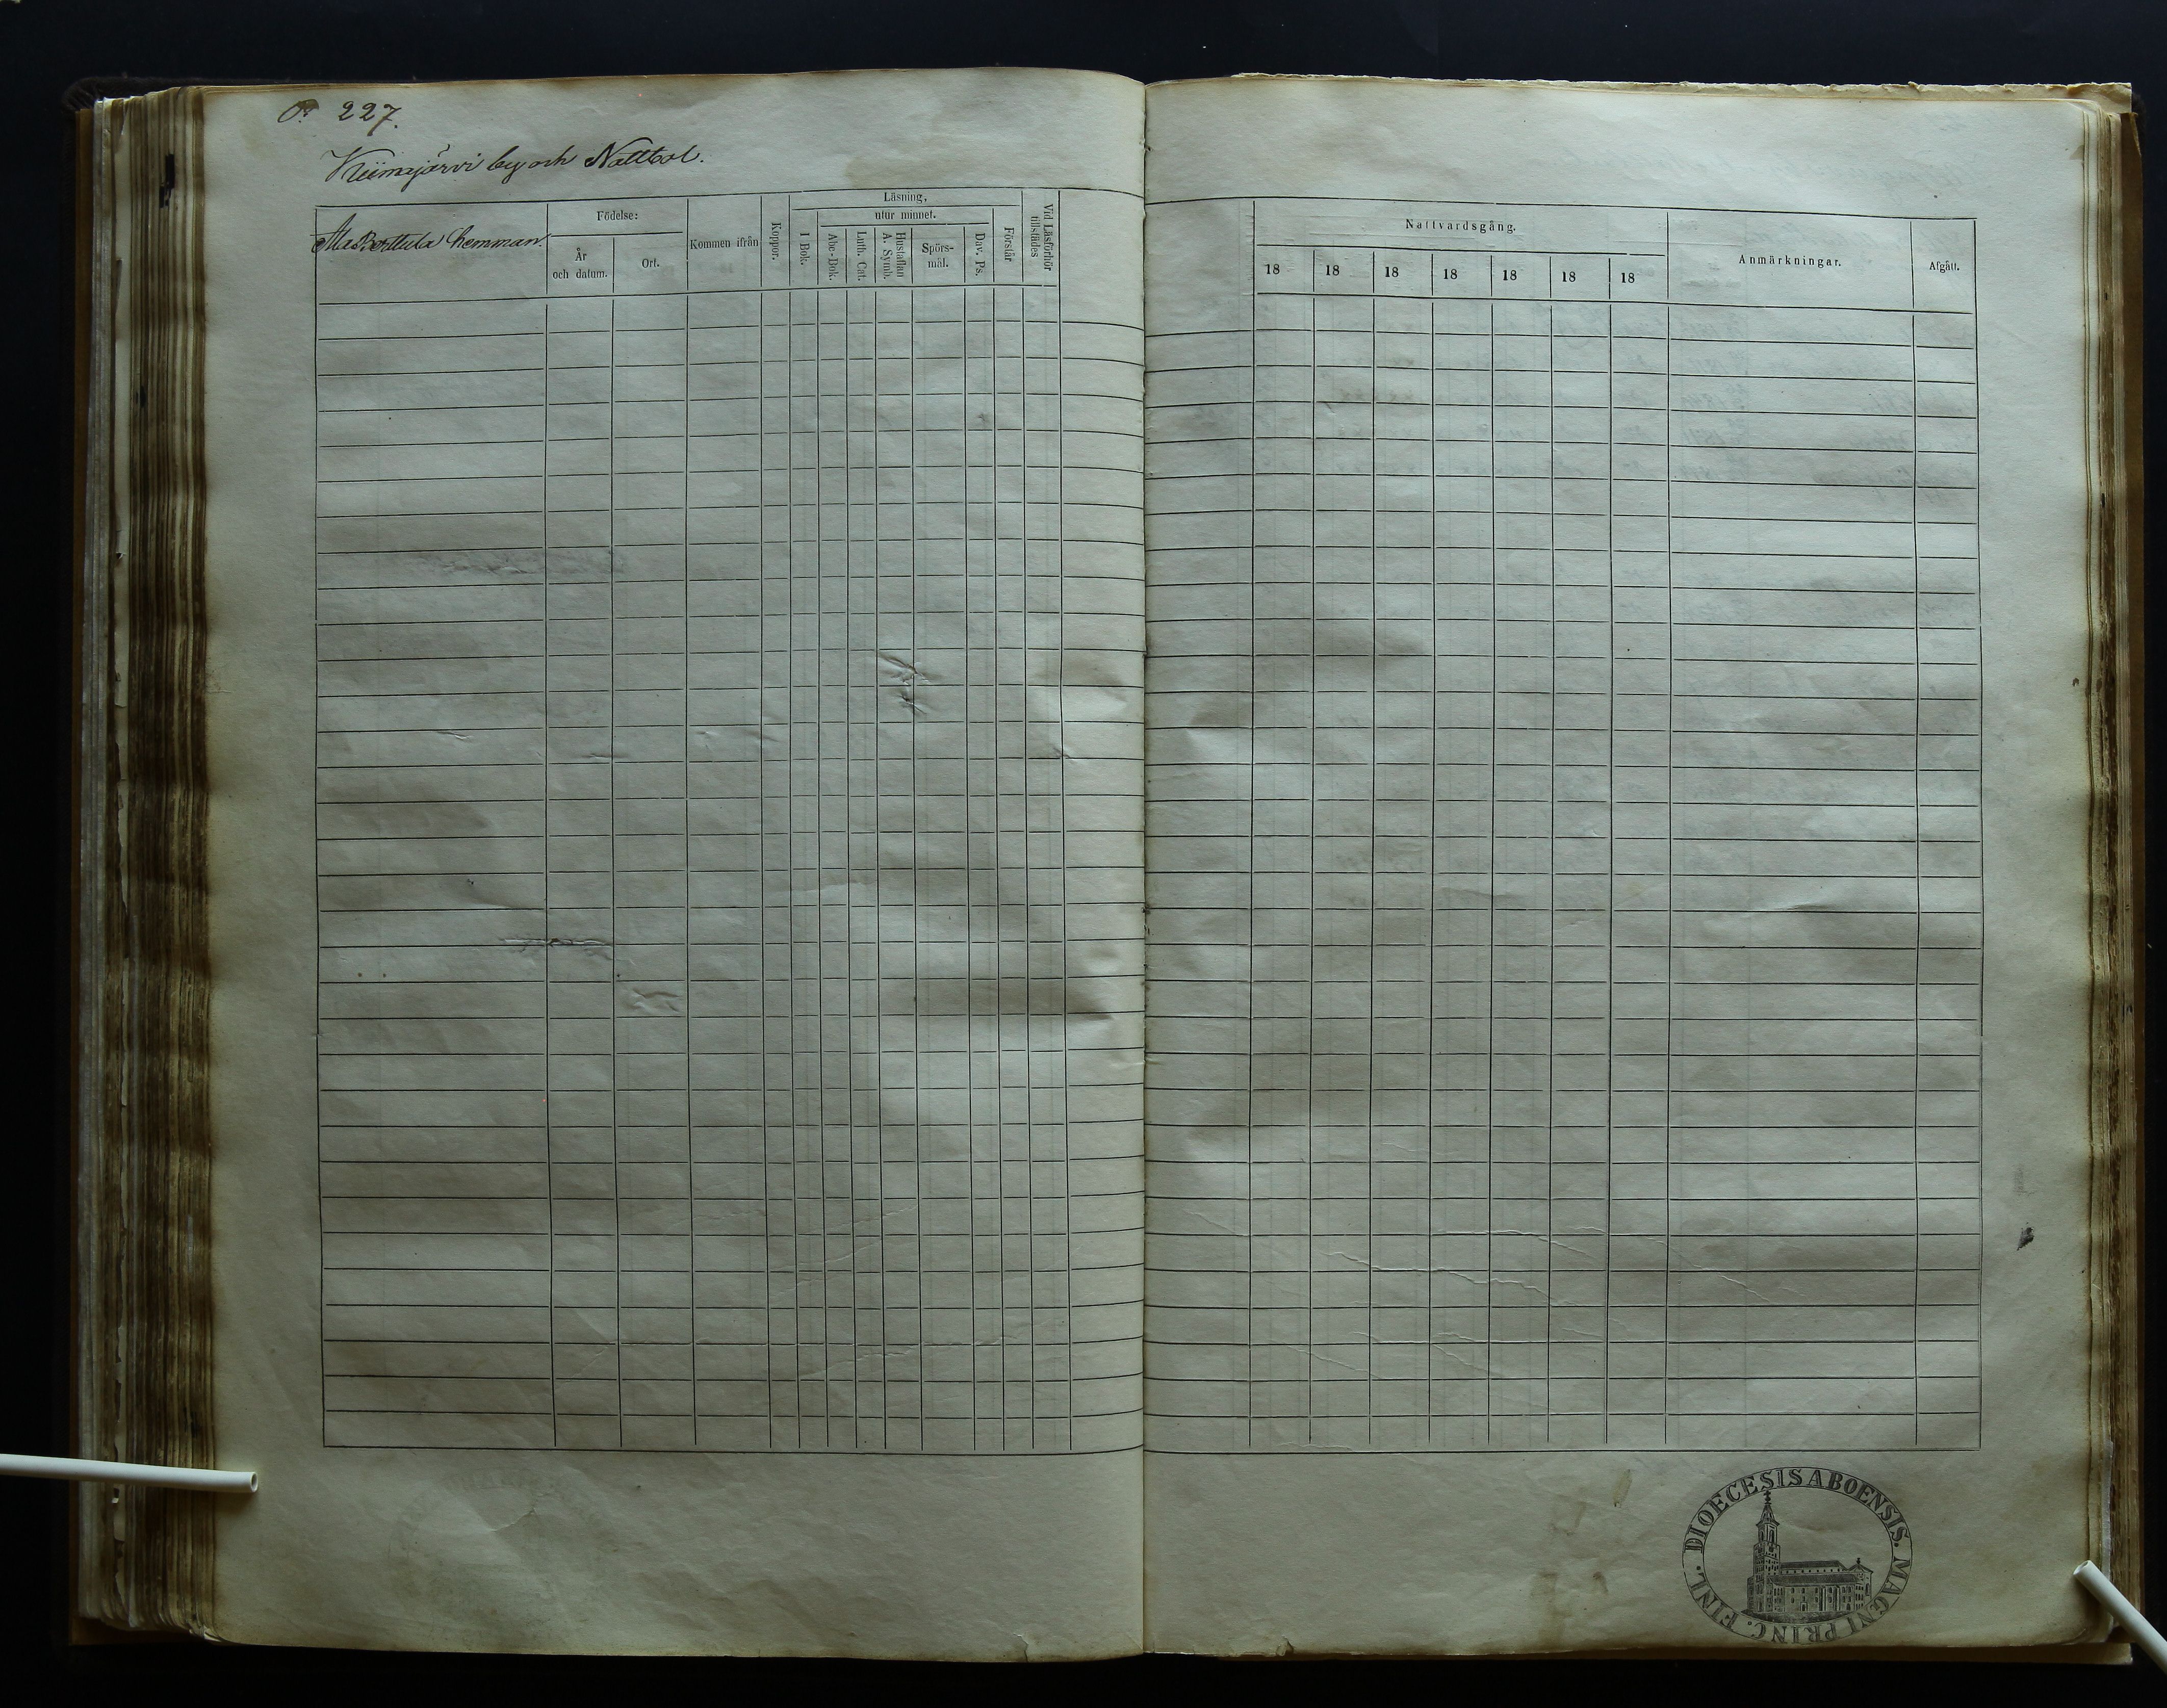 227.
Kiimajärvi by och Nattbol.
Ala Perttula hemman.
Födelse:
År
och datum.
Ort.
Kommen ifrån
Koppor.
Läsning,
utur minnet.
I Bok.
Abc-Bok.
Luth. Cat.
Hustaflan
A. Symb.
Spörs-
mål.
Dav. Ps.
Förstår
Vid Läsförhör
tillstädes
Nattvardsgång.
18 18 18 18 18 18 18
Anmärkningar.
Afgått.
DIOECESIS ABOENSIS. MAGNI PRINC. FINL.